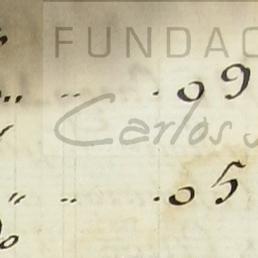 FUNDAC
" .. .09
Carlos
" .. .05